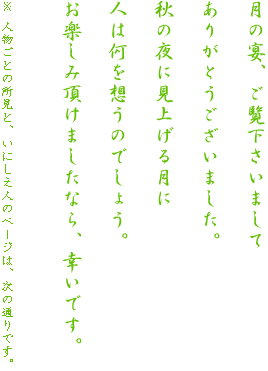 月の宴、ご覧下さいまして
ありがとうございました。
秋の夜に見上げる月に
人は何を想うのでしょう。
お楽しみ頂けましたなら、幸いです。
※人物ごとの所見と、いにしえ人のページは、次の通りです。